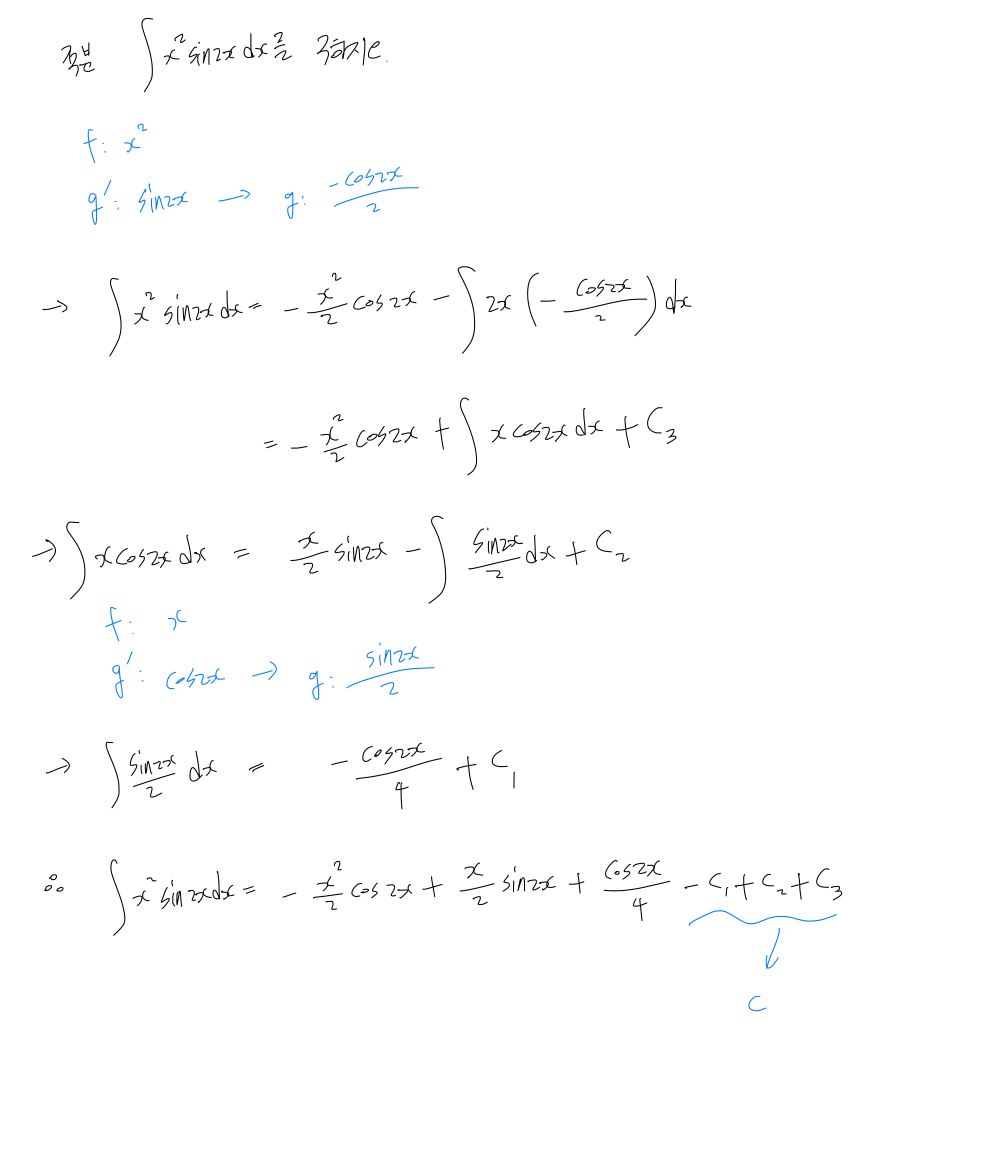 적분 ∫ x² sin2x dx를 구하시오.
f: x²
g': sin2x → g: -cos2x/2
→ ∫ x² sin2x dx = - x²/2 cos2x - ∫ 2x (- cos2x/2) dx
= - x²/2 cos2x + ∫ x cos2x dx + C₃
→ ∫ x cos2x dx = x/2 sin2x - ∫ sin2x/2 dx + C₂
f: x
g': cos2x → g: sin2x/2
→ ∫ sin2x/2 dx = - cos2x/4 + C₁
∴ ∫ x² sin2x dx = - x²/2 cos2x + x/2 sin2x + cos2x/4 - C₁ + C₂ + C₃
↓
C